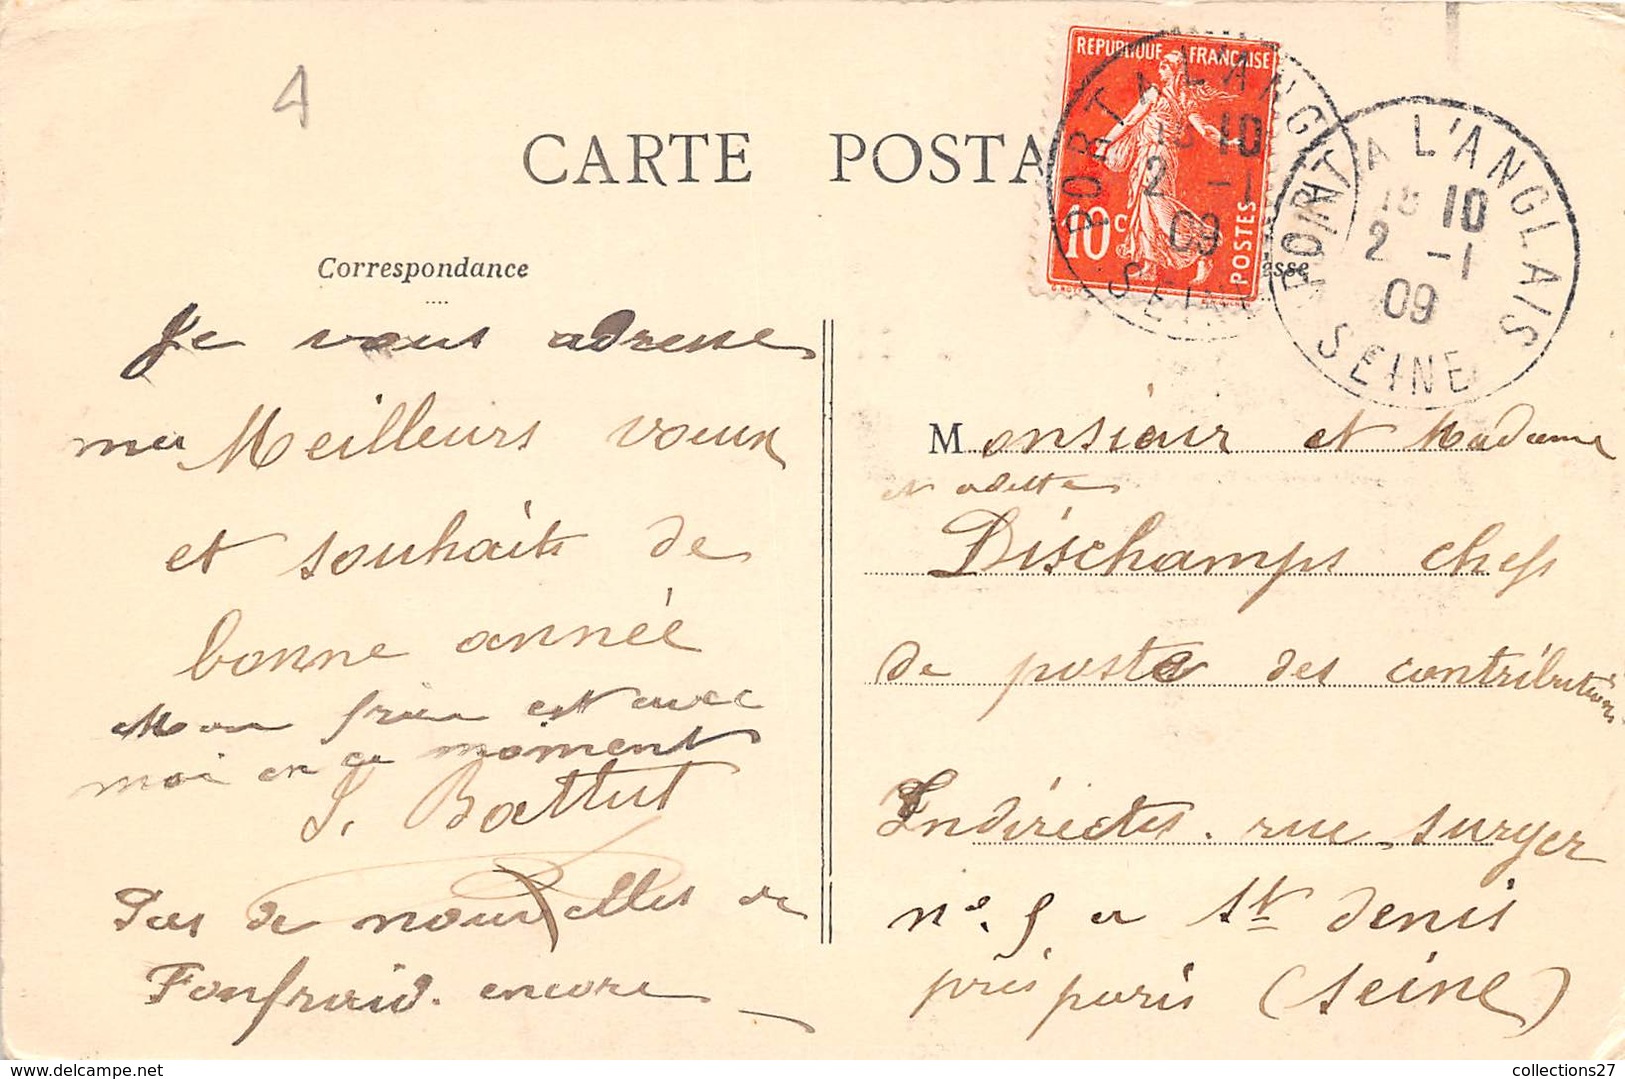 4
CARTE POSTA
REPUBLIQUE FRANÇAISE
10c
POSTES
PORT A L'ANGLAIS
10
2 -1
09
SEINE
PORT A L'ANGLAIS
10
2 -1
09
SEINE
Correspondance
esse
Je vous adresse
mes Meilleurs voeux
et souhaits de
bonne année
Mon frère est avec
moi en ce moment
J. Battut
Pas de nouvelles de
Fonfraid. encore
Monsieur et Madame
et odette
Dischamps chef
de poste des contributions
Indirectes. rue surger
n°. 5 a St denis
près paris (seine)
collections27